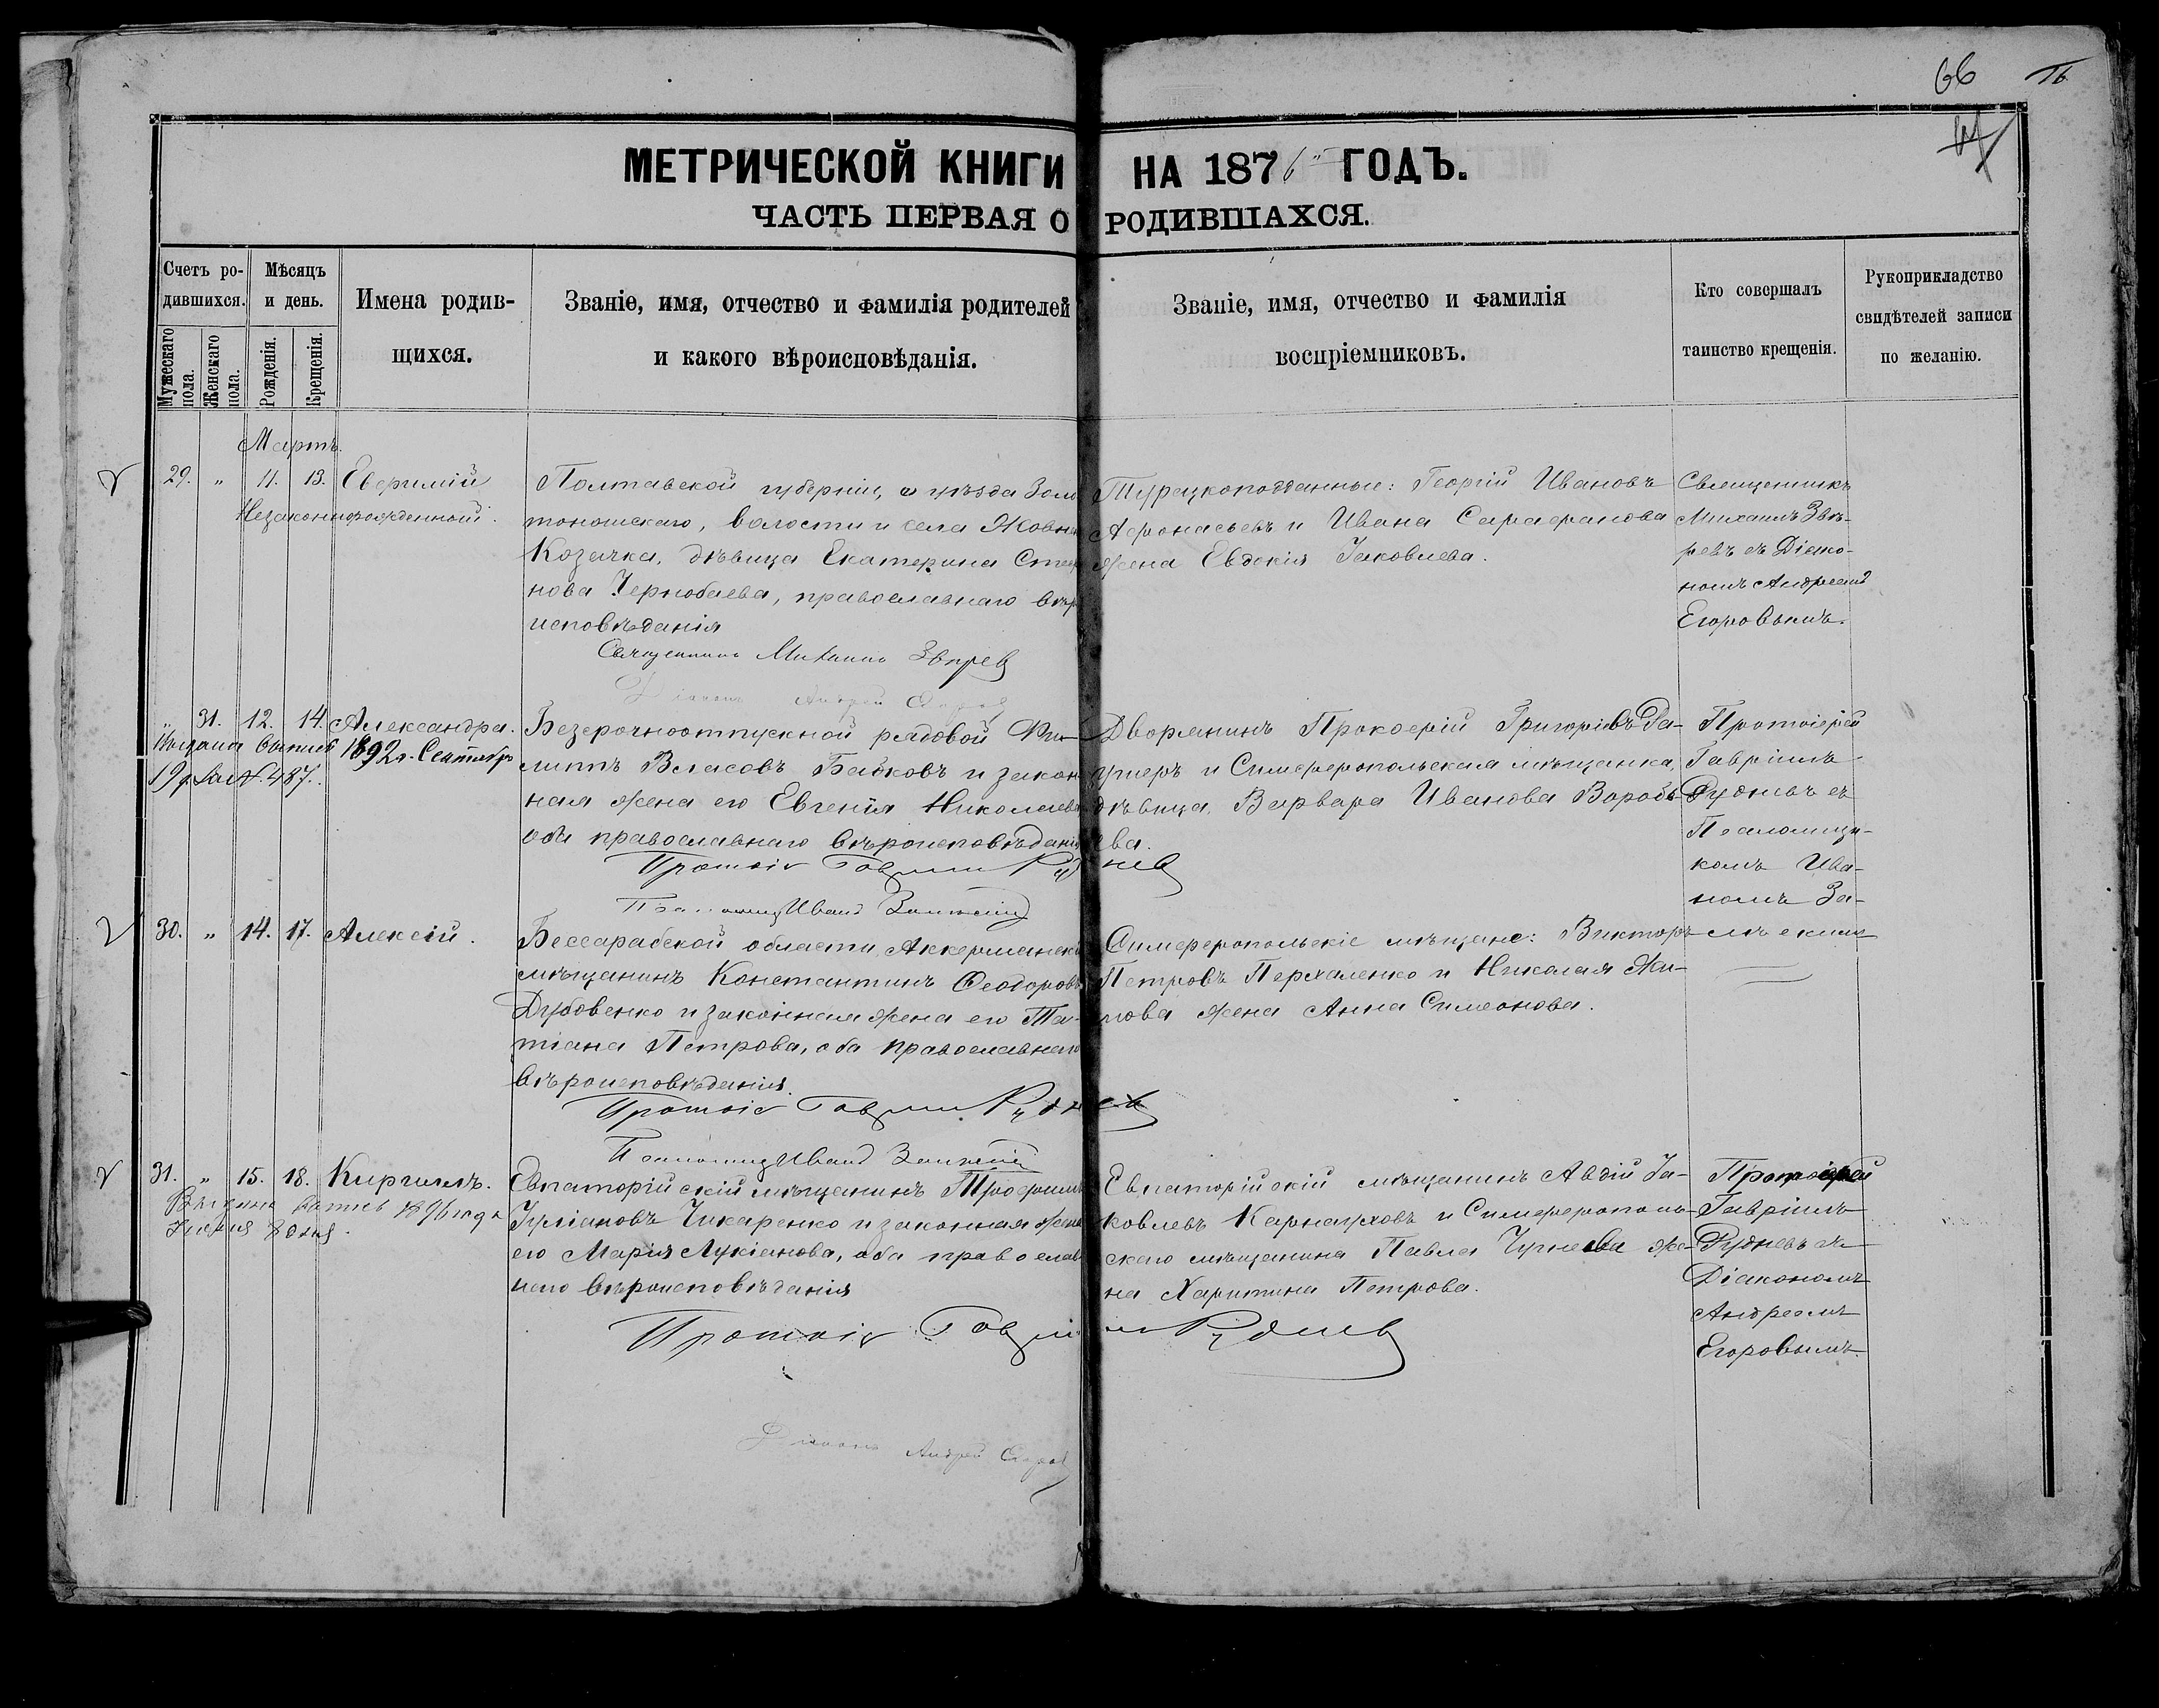 66
МЕТРИЧЕСКОЙ КНИГИ НА 1876 ГОДЪ.
ЧАСТЬ ПЕРВАЯ О РОДИВШАХСЯ.
Счетъ ро-
дившихся.
Мужескаго пола.
Женскаго пола.
Мѣсяцъ
и день.
Рожденія.
Крещенія.
Имена родив-
щихся.
Званіе, имя, отчество и фамилія родителей
и какого вѣроисповѣданія.
Званіе, имя, отчество и фамилія
воспріемниковъ.
Кто совершалъ
таинство крещенія.
Рукоприкладство
свидѣтелей записи
по желанію.
Мартъ.
29. " 11. 13.
Незаконнорожденный.
Полтавской губерніи, уѣзда Золо
тоношскаго, волости и села Жовни
Козачка, дѣвица Екатерина Сте
нова Чернобаева, православнаго вѣр
исповѣданія
Священникъ Михаилъ Звѣрев
Діаконъ Андрей Егоров
Турецкоподданные: Георгій Ивановъ
Афонасьевъ и Ивана Сарафанова
жена Евдокія Іаковлева.
Священникъ
Михаилъ Звѣ-
ревъ съ Діако-
номъ Андреемъ
Егоровымъ.
" 31. 12. 14. Александра.
выпись 1892 г. Сентябр
19 д. за № 487.
Безсрочноотпускной рядовой Фи-
липпъ Власовъ Бабковъ и закон
ная жена его Евгенія Николаева
оба православнаго вѣроисповѣданія
Протоіе Гавріил Руднев
Иванъ
Дворянинъ Прокофій Григорієвъ Га-
и Симферопольская мѣщанка,
дѣвица, Варвара Иванова Воробь-
ева.
Протоіерей
Гавріилъ
Рудневъ съ
Псаломщи-
комъ Ива-
номъ За-
30. " 14. 17. Алексій.
Бессарабской области, Аккерманск
мѣщанинъ Константинъ Ѳеодоровъ
Дубовенко и законная жена его Та-
тіана Петрова, оба православнаго
вѣроисповѣданія.
Протоіе Гавріил Руднев
Иванъ
Симферопольскіе мѣщане: Викторъ
Петровъ Пархаленко и Николая
жена Анна Симеонова.
31. " 15. 18. Кириллъ.
Выдана выпись 1896 года
Евпаторійскій мѣщанинъ Трофимъ
Іуліановъ Чикаренко и законная жена
его Марія Лукіанова, оба православ
наго вѣроисповѣданія
Протоіе Гавріил Руднев
Діаконъ Андрей Егоров
Евпаторійскій мѣщанинъ Авдій Іа-
ковлевъ Карнауховъ и Симферополь-
скаго мѣщанина Павла Чугнеева же-
на Харитина Петрова.
Протоіерей
Гавріилъ
Рудневъ съ
Діакономъ
Андреемъ
Егоровымъ.